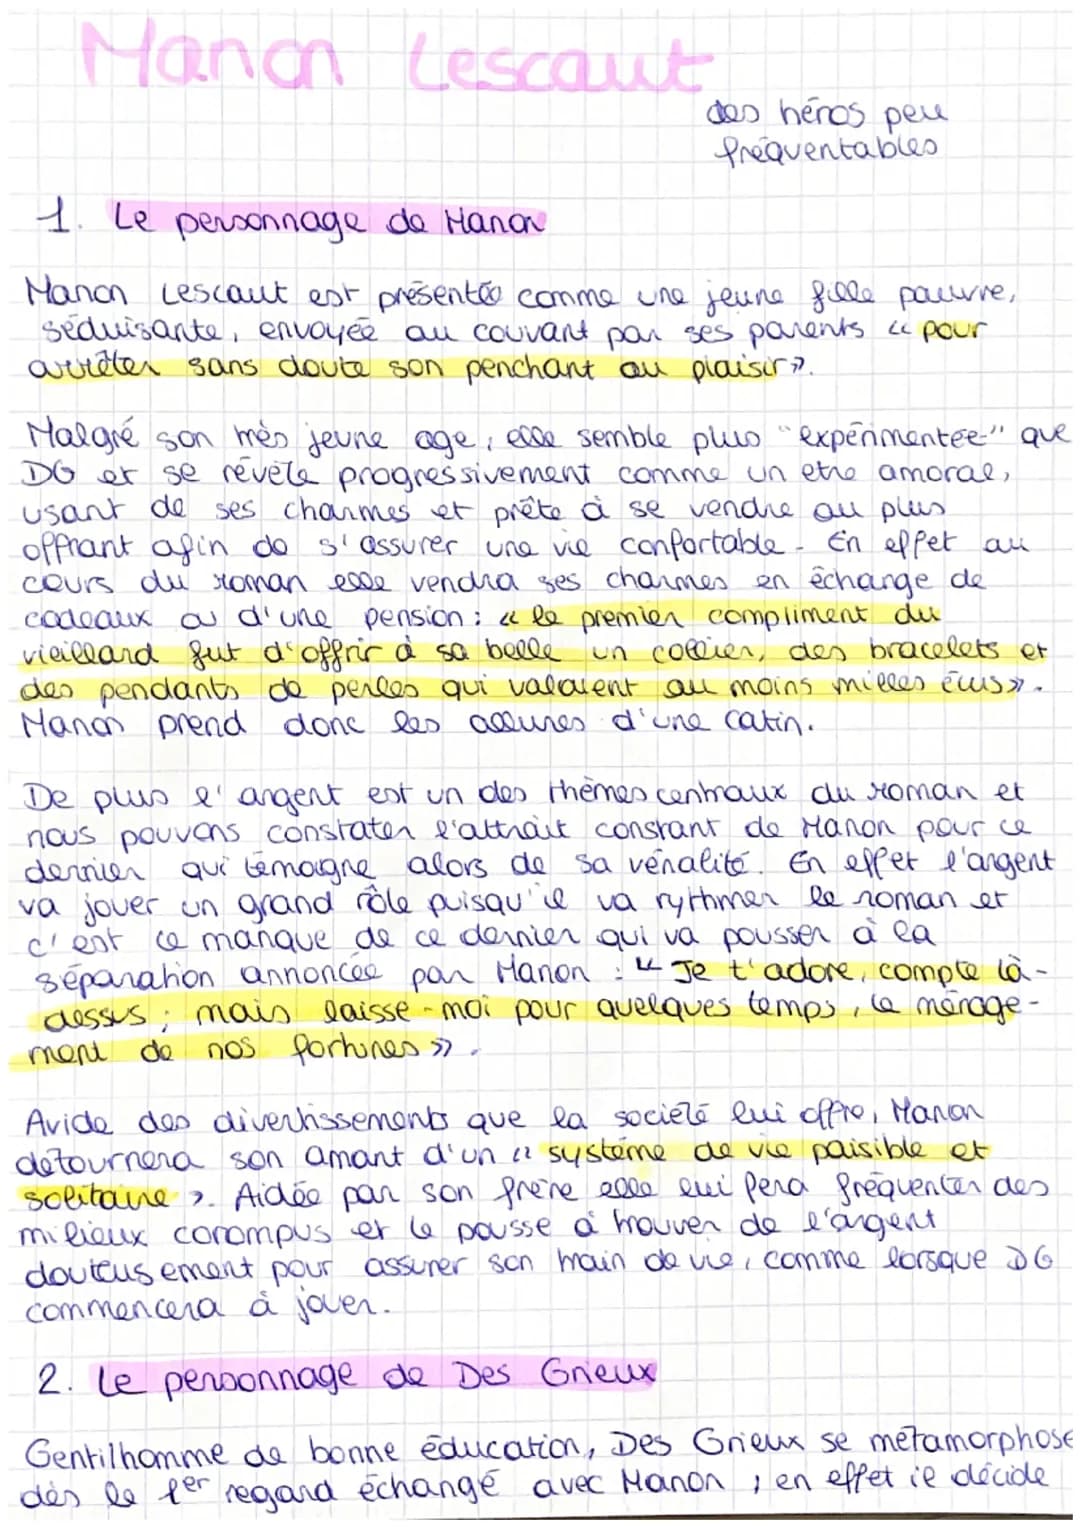 Manon Lescaut
des héros peu
fréquentables
1. Le personnage de Manon
Manon Lescaut est présentée comme une jeune fille pauvre,
séduisante, envoyée au couvant par ses parents « pour
arrêter sans doute son penchant au plaisir ».
Malgré son très jeune age, elle semble plus "expérimentée" que
DG et se révèle progressivement comme un etre amoral,
usant de ses charmes et prête à se vendre au plus
offrant afin de s'assurer une vie confortable. En effet au
cours du roman elle vendra ses charmes en échange de
cadeaux ou d'une pension : « le premier compliment du
vieillard fut d'offrir à sa belle un collier, des bracelets et
des pendants de perles qui valaient au moins milles écus ».
Manon prend donc les allures d'une catin.
De plus l'argent est un des thèmes centraux du roman et
nous pouvons constater l'attrait constant de Manon pour ce
dernier qui témoigne alors de sa vénalité. En effet l'argent
va jouer un grand rôle puisqu'il va rythmer le roman et
c'est ce manque de ce dernier qui va pousser à la
séparation annoncée par Manon : « Je t'adore, compte là-
dessus ; mais laisse-moi pour quelques temps, le ménage-
ment de nos fortunes ».
Avide des divertissements que la société lui offre, Manon
détournera son amant d'un « système de vie paisible et
solitaire ». Aidée par son frère elle lui fera fréquenter des
milieux corompus et le pousse à trouver de l'argent
douteusement pour assurer son train de vie, comme lorsque DG
commencera à jouer.
2. Le personnage de Des Grieux
Gentilhomme de bonne éducation, Des Grieux se métamorphose
dès le 1er regard échangé avec Manon ; en effet il décide